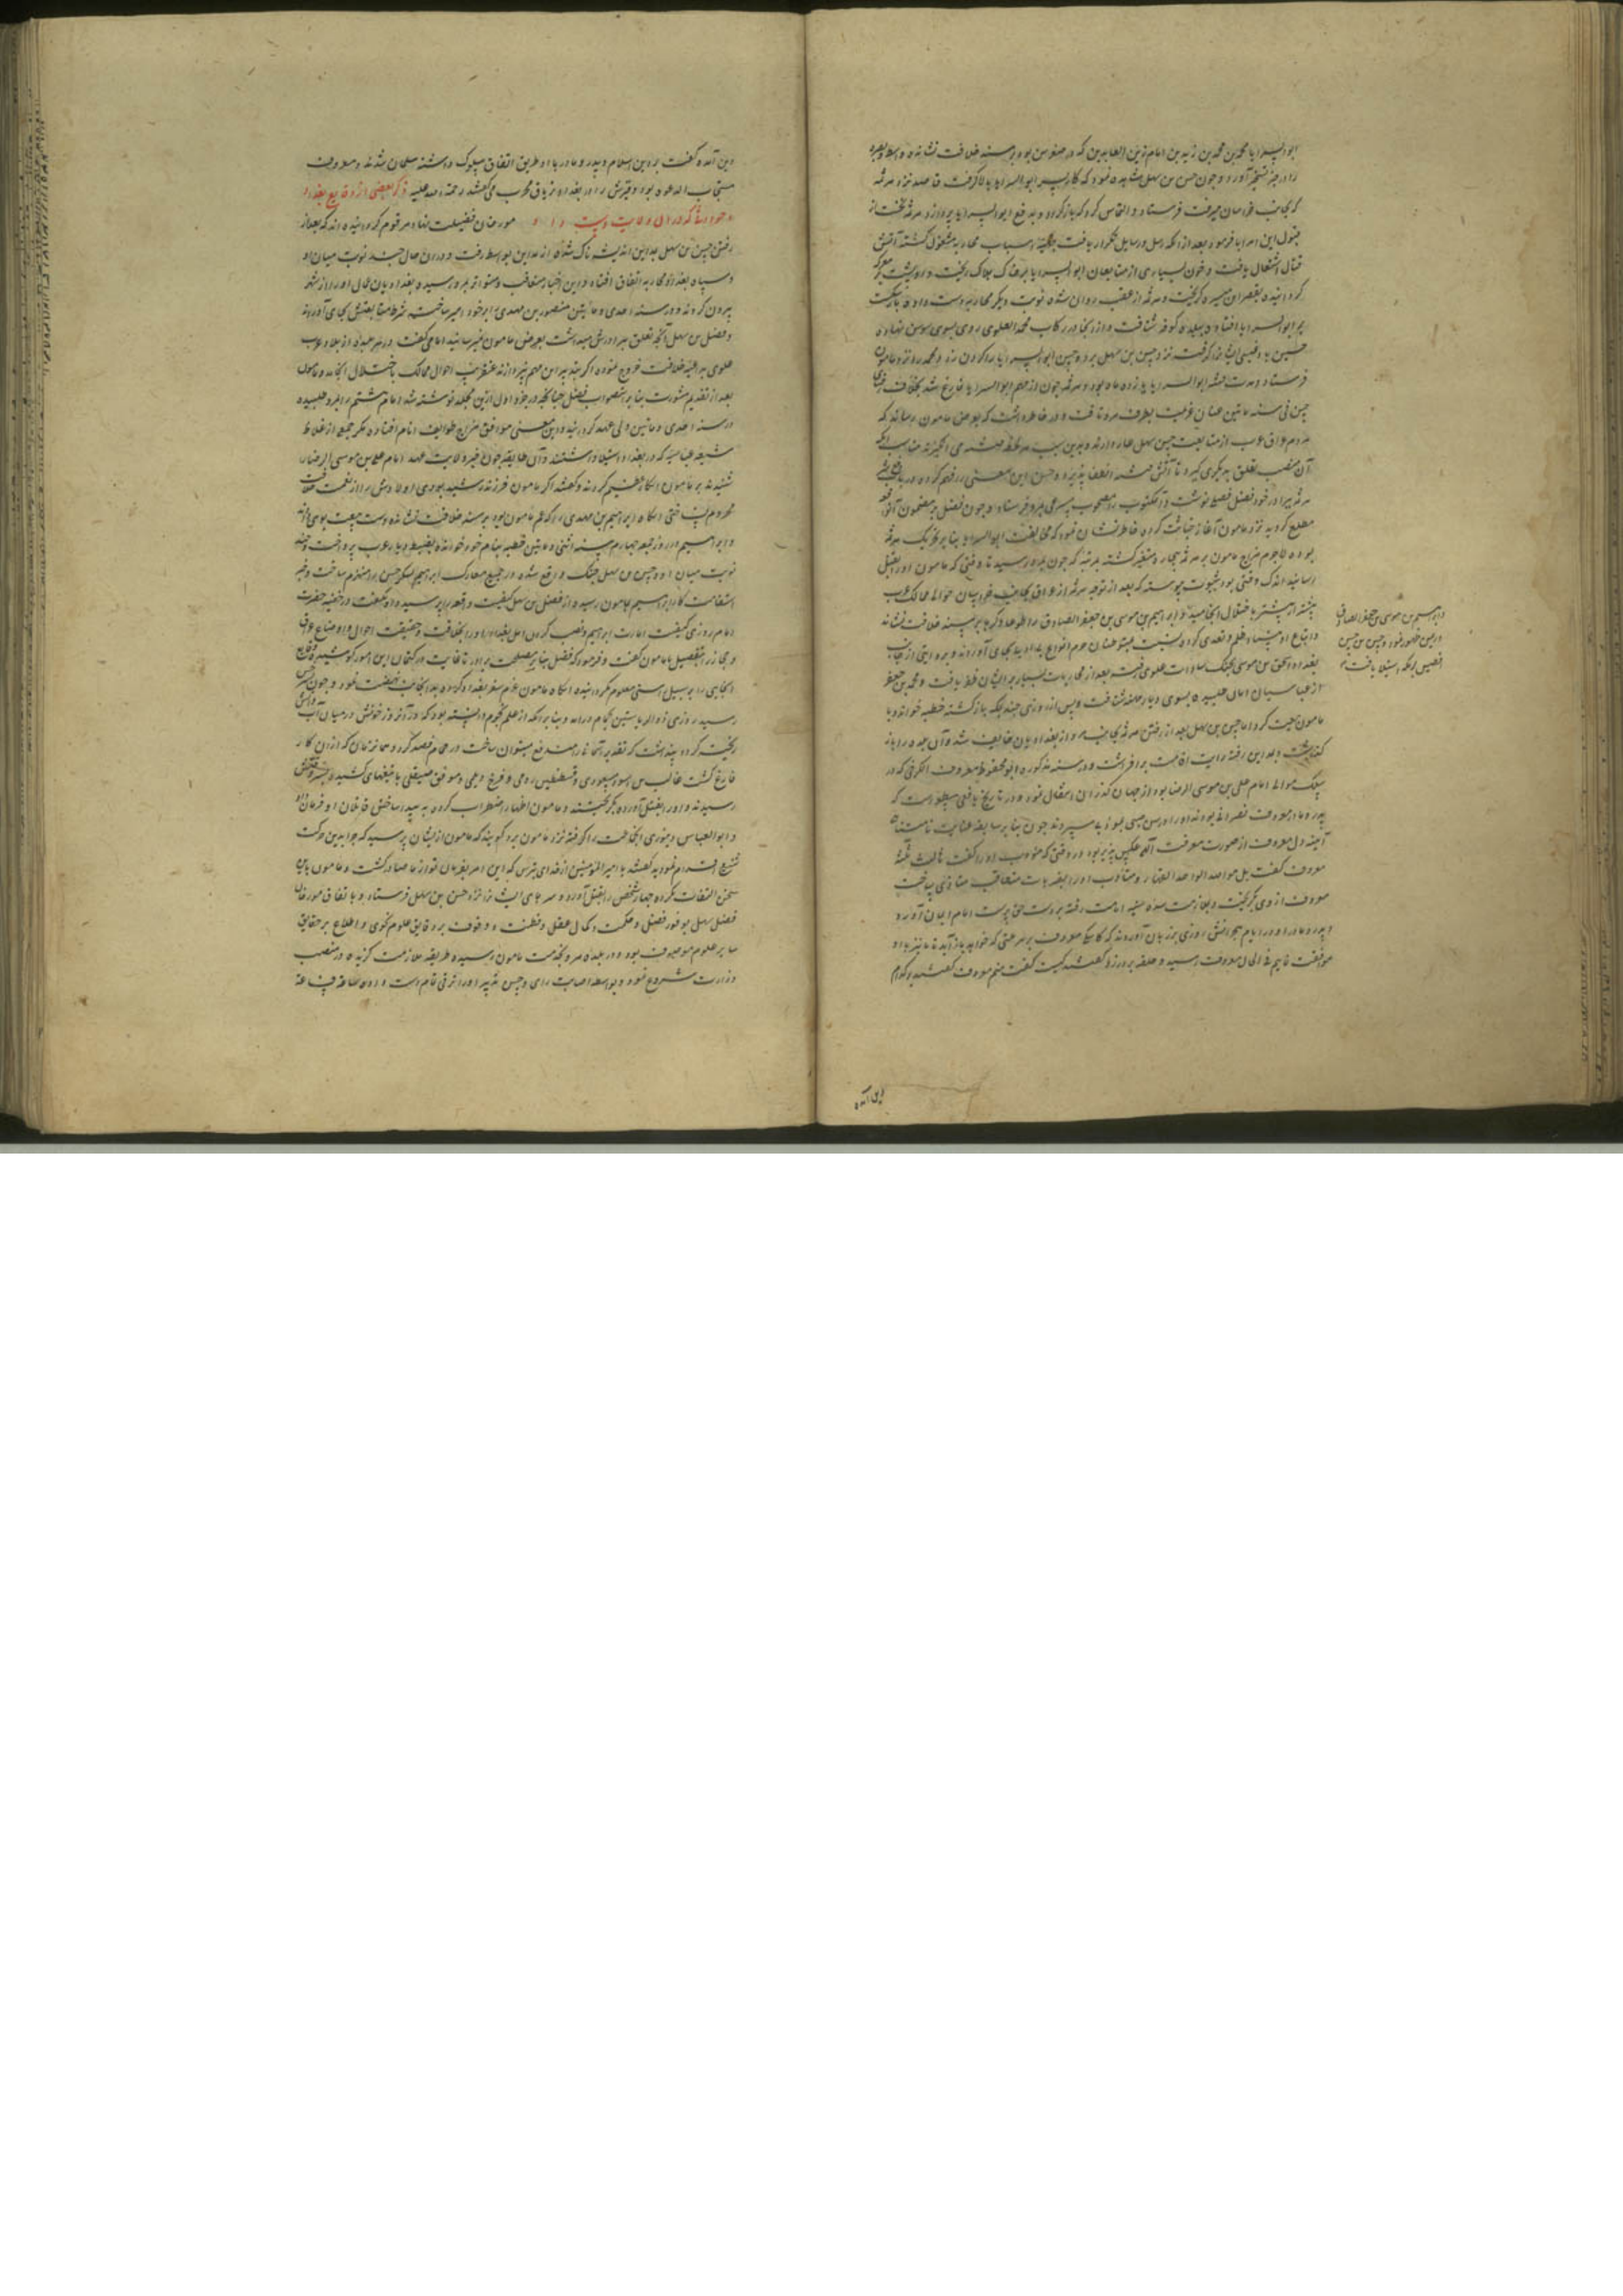 ابوالسرایا محمد بن محمد بن زید بن امام زین العابدین که در صغر سن بود بر مسند خلافت نشانده و واسط و بصره
را در حیز تسخیر آورد و چون حسن بن سهل مشاهده نمود که کار ابوالسرایا بالا گرفت قاصد نزد هرثمه
که بجانب خراسان میرفت فرستاد و التماس کرد که باز گردد و بدفع ابوالسرایا پردازد هرثمه نخست از
قبول این امر ابا فرمود بعد از آنکه رسل و رسایل تکرار یافت بتهیه اسباب محاربه مشغول گشته آتش
قتال اشتعال یافت و خون بسیاری از متابعان ابوالسرایا بر خاک هلاک ریخت و او پشت بر معرکه
گردانیده بقصر ابن هبیره گریخت و هرثمه از عقب روان شده نوبت دیگر محاربه دست داده باز شکست
بر ابوالسرایا افتاد و ببلده کوفه شتافت و از آنجا در رکاب محمد العلوی روی بسوی سوس نهاده
نزد حسن بن سهل برد و حسن ابوالسرایا را گردن زد و محمد را نزد مامون
فرستاد و مدت فتنه ابوالسرایا ده ماه بود و هرثمه چون از مهم ابوالسرایا فارغ شد
در سنه ماتین عنان عزیمت بطرف مرو تافت و در خاطر داشت که بعرض مامون رساند که
مردم عراق عرب از متابعت حسن بن سهل عار دارند و بدین سبب هر لحظه فتنه می انگیزند مناسب آنکه
آن منصب تعلق بدیگری گیرد تا آتش فتنه انطفا پذیرد و حسن این معنی را فهم کرده
هرثمه ببرادر خود فضل فصلی نوشت و آن مکتوب را مصحوب مسرعی بمرو فرستاد و چون فضل بر مضمون آن
مطلع گردید نزد مامون آغاز خباثت کرده خاطر نشان نمود که مخالفت ابوالسرایا بنا بر تحریک هرثمه
بوده لاجرم مزاج مامون بر هرثمه بیچاره متغیر گشته بمرتبه که چون بمرو رسید تا وقتی که مامون او را بقتل
رسانید اندک وقتی بود بثبوت پیوسته که بعد از توجه هرثمه از عراق بجانب خراسان احوال ممالک عرب
بیشتر از پیشتر باختلال انجامید و ابراهیم بن موسی بن جعفر الصادق را بر مسند خلافت نشاند
بغداد و اسحق بن موسی بجنگ سادات علوی رفته بعد از محاربات بسیار بر ایشان ظفر یافت و محمد بن جعفر
از عباسیان امان طلبیده بسوی دیار جحفه شتافت و پس از روزی چند بمکه باز گشته خطبه خواند و با
مامون بیعت کرد اما حسن بن سهل بعد از رفتن هرثمه از بغدادیان خایف شد و آن بلده را باز
گذاشت و بمداین رفته رایت اقامت بر افراشت و در سنه مذکوره ابو محفوظ معروف الکرخی که در
سلک موالی امام علی بن موسی الرضا بود از جهان گذران انتقال نمود و در تاریخ یافعی مسطور است که
پدر و مادر معروف نصرانی بودند و او را در سن صبی بمؤدبی سپردند چون بنا بر سابقه عنایت
آینه دل معروف از صورت معرفت الهی عکس پذیر بود در وقتی که مؤدب او را گفت ثالث ثلثه
معروف گفت بل هو الله الواحد القهار و مؤدب او را بضربات متعاقب متاذی ساخت
معروف از وی گریخت و بملازمت سده سنیه امامت رفته بر دست حق پرست امام ایمان آورد
پدر و مادر او در ایام هجرانش روزی بر زبان آوردند که کاشکی معروف بهر ملتی که خواهد باز آید تا ما نیز با او
موافقت نماییم فی الحال معروف رسید و حلقه بر در زد گفتند کیست گفت منم معروف گفتند بر کدام
و ابراهیم بن موسی بن جعفر الصادق
در یمن ظهور نمود و حسن بن حسن
افطس بر مکه استیلا یافت
دین آمده
دین آمده گفت بر دین اسلام و پدر و مادر با او طریق اتفاق مسلوک داشته مسلمان شدند و معروف
مستجاب الدعوه بود و قبرش را در بغداد تریاق مجرب می گفتند رحمة الله علیه ذکر بعضی از وقایع بغداد
و حوادثی که در آن ولایت دست داد مورخان فضیلت نهاد مرقوم گردانیده اند که بعد از
رفتن حسن بن سهل بمداین اندیشه ناک شده از مداین بواسط رفت و در آن حال چند نوبت میان او
و سپاه بغداد محاربه اتفاق افتاد و این اخبار متعاقب و متواتر بمرو رسیده بغدادیان عامل او را از شهر
بیرون کردند و در سنه احدی و ماتین منصور بن مهدی را بر خود امیر ساخته شرط متابعتش بجای آوردند
و فضل بن سهل آنچه تعلق ببرادرش میداشت بعرض مامون نمیرسانید اما می گفت در هر بلده از بلاد عرب
علوی بداعیه خلافت خروج نموده اگر بتدبیر این مهم نپردازند عنقریب احوال ممالک باختلال انجامد و مامون
بعد از تقدیم مشورت بنا بر استصواب فضل چنانکه در جزو اول ازین مجلد نوشته شد امام هشتم را بمرو طلبیده
در سنه احدی و ماتین ولی عهد گردانید و این معنی موافق مزاج طوایف انام افتاده مگر جمعی از غلاة
شیعه عباسیه که در بغداد استیلا داشتند و آن طایفه چون خبر ولایت عهد امام علی بن موسی الرضا را
شنیدند بر مامون انکار عظیم کردند و گفتند اگر مامون فرزند رشید بودی اولادش را از نعمت خلافت
محروم نساختی آنگاه ابراهیم بن مهدی را که عم مامون بود بر مسند خلافت نشانده دست بیعت بوی دادند
و ابراهیم در روز جمعه چهارم سنه اثنی و ماتین خطبه بنام خود خوانده بضبط دیار عرب پرداخت و چند
نوبت میان او و حسن بن سهل جنگ واقع شده در جمیع معارک ابراهیم لشکر حسن را منهزم ساخت و خبر
استقامت کار ابراهیم بمامون رسیده از فضل بن سهل کیفیت واقعه را پرسید و او گفت
امام روزی کیفیت امارت ابراهیم و نصب کردن اهل بغداد او را بخلافت و حقیقت احوال و اوضاع عراق
و حجاز را بتفصیل با مامون گفت و فرمود که فضل بنا بر مصلحت برادر تا غایت در کتمان این امور کوشیده
آنجایی را بر سبیل راستی معلوم گردانیده آنگاه مامون عزم سفر بغداد کرده بدانجانب نهضت نمود و چون بسرخس
رسید روزی ذوالریاستین بحمام درآمد و بنا بر آنکه از علم نجوم دانسته بود که در آن روز خونش در میان آب و آتش
ریخته گردد پنداشت که تقدیر آسمانی را دفع میتوان ساخت در حمام فصد کرد و همان زمان که از آن کار
فارغ گشت غالب بن اسود مسعودی و قسطنطین رومی و فرج دیلمی و موفق صیقلی با تیغهای کشیده بسر وقتش
رسیدند و او را بقتل آورده بگریختند و مامون اظهار اضطراب کرده به پیدا ساختن قاتلان او فرمان داد
و ابوالعباس دینوری آنجماعت را گرفته نزد مامون برد گویند که مامون از ایشان پرسید که چرا بدین حرکت
شنیع اقدام نمودید گفتند یا امیر المؤمنین از خدای بترس که این امر بفرمان تو از ما صادر گشت و مامون باین
سخن التفات نکرده چهار شخص را بقتل آورد و سرهای ایشان را نزد حسن بن سهل فرستاد و باتفاق مورخان
فضل سهل بوفور فضل و حکمت و کمال عقل و فطنت و وقوف بر دقایق علوم نجوم و اطلاع بر حقایق
سایر علوم موصوف بود و در بلده مرو بخدمت مامون رسیده طریقه ملازمت گزیده در منصب
وزارت شروع نمود و بواسطه اصابت رای و حسن تدبیر او را ترقی تمام دست داد